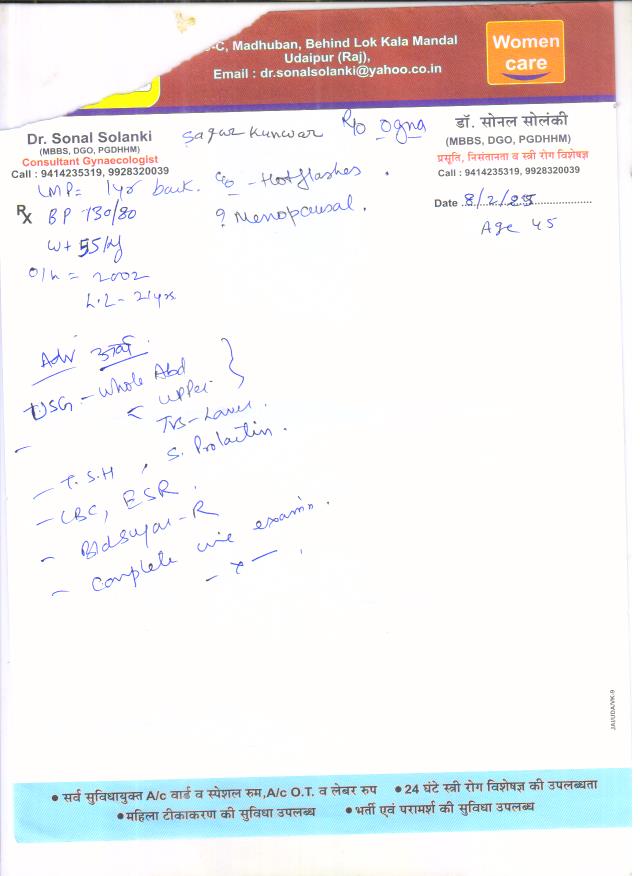 -C, Madhuban, Behind Lok Kala Mandal
Udaipur (Raj),
Email : dr.sonalsolanki@yahoo.co.in
Women
care
Dr. Sonal Solanki
(MBBS, DGO, PGDHHM)
Consultant Gynaecologist
Call : 9414235319, 9928320039
Sagar Kunwar R/o Ogna
डॉ. सोनल सोलंकी
(MBBS, DGO, PGDHHM)
प्रसूति, निसंतानता व स्त्री रोग विशेषज्ञ
Call : 9414235319, 9928320039
LMP = 1yr back. C/o - Hot flashes.
Rx BP 130/80 ? Menopausal.
Date 8/2/25
Age 45
Wt 55 kg
O/h = 2002
L.L - 21yrs
Adv
USG - Whole Abd
< Upper
TVS - Lower.
- T.S.H, S. Prolactin.
- CBC, ESR.
- Bld sugar - R
- Complete urine examin.
- x -
JAI/UDA/VK-9
• सर्व सुविधायुक्त A/c वार्ड व स्पेशल रुम,A/c O.T. व लेबर रुप • 24 घंटे स्त्री रोग विशेषज्ञ की उपलब्धता
• महिला टीकाकरण की सुविधा उपलब्ध • भर्ती एवं परामर्श की सुविधा उपलब्ध